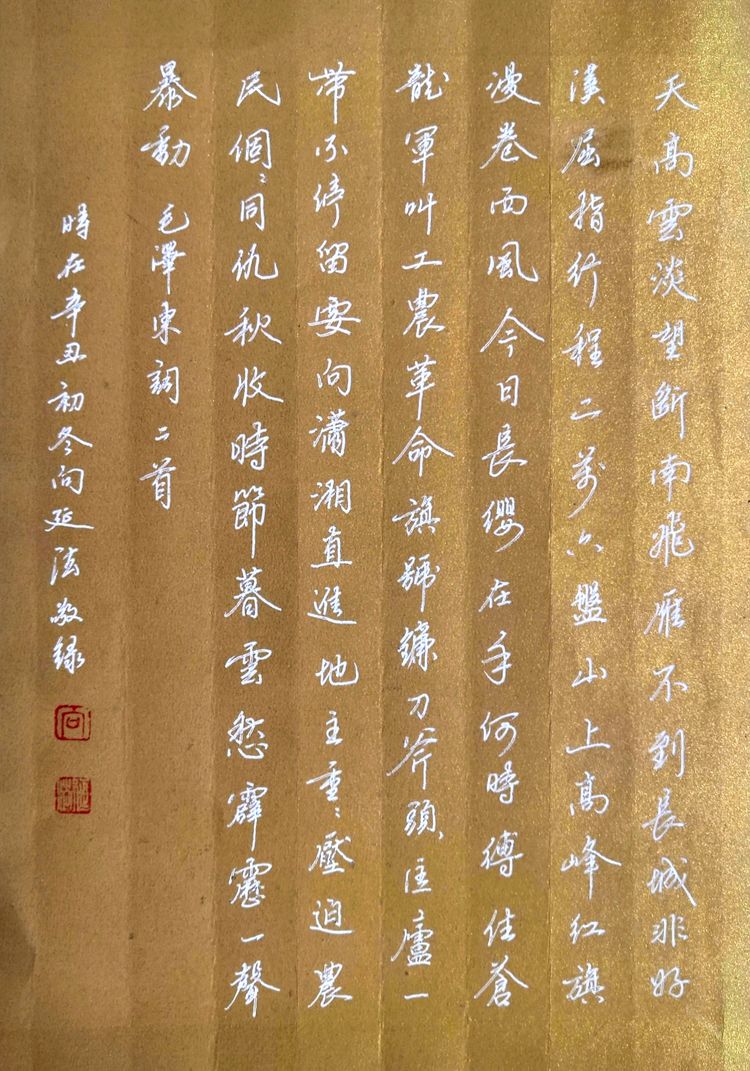 天高雲淡望斷南飛雁不到長城非好
漢屈指行程二萬六盤山上高峰紅旗
漫卷西風今日長纓在手何時縛住蒼
龍軍叫工農革命旗號鐮刀斧頭、匡廬一
帶不停留要向瀟湘直進地主重〻壓迫農
民個〻同仇秋收時節暮雲愁霹靂一聲
暴動 毛澤東詞二首
時在辛丑初冬向延法敬録
向